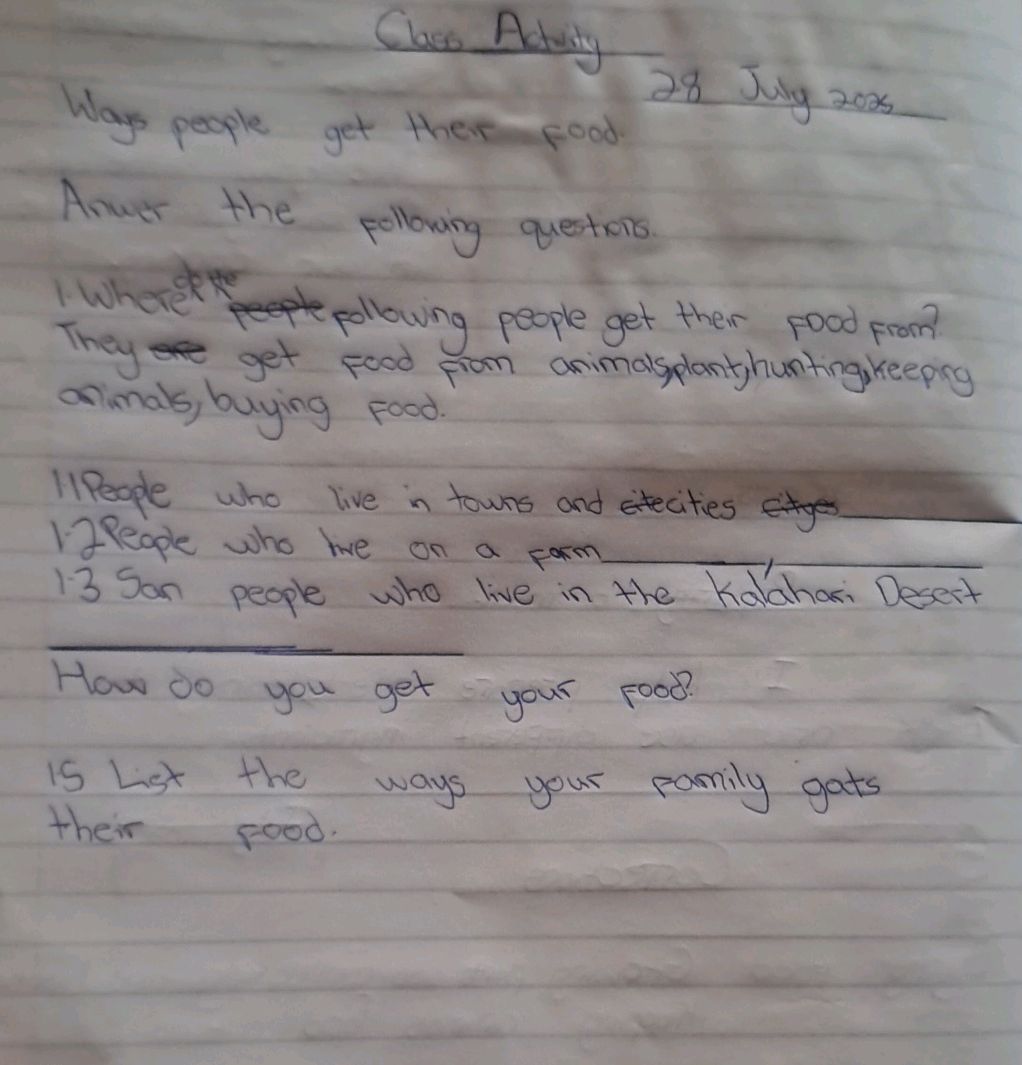 Class Activity
28 July 2025
Ways people get their food.
Anwer the following questions.
1. Where do the people following people get their food from?
They are get food from animals,plant,hunting,keeping
animals,buying food.
1.1 People who live in towns and cities
1.2 People who live on a farm
1.3 San people who live in the Kalahari Desert
How do you get your food?
1.5 List the ways your family gats
their food.